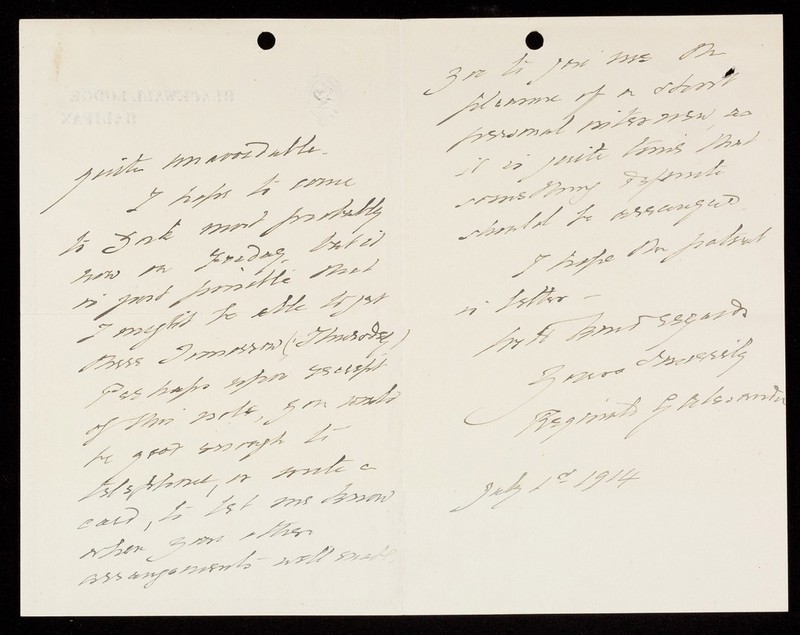 quite unavoidable.
I hope to come
to York most probably
now on Friday, but it
is just possible that
I might be able to get
there Tomorrow (Thursday)
Perhaps upon receipt
of this note, you would
be good enough to
telephone, or write a
card, to let me know
when your other
arrangements will enable
you to give me the
pleasure of a short
personal interview, as
it is quite time that
something definite
should be arranged.
I hope the patient
is better –
With kind regards
Yours Sincerely
Reginald G Alexander
July 1st 1914
BLACKWALL LODGE
HALIFAX